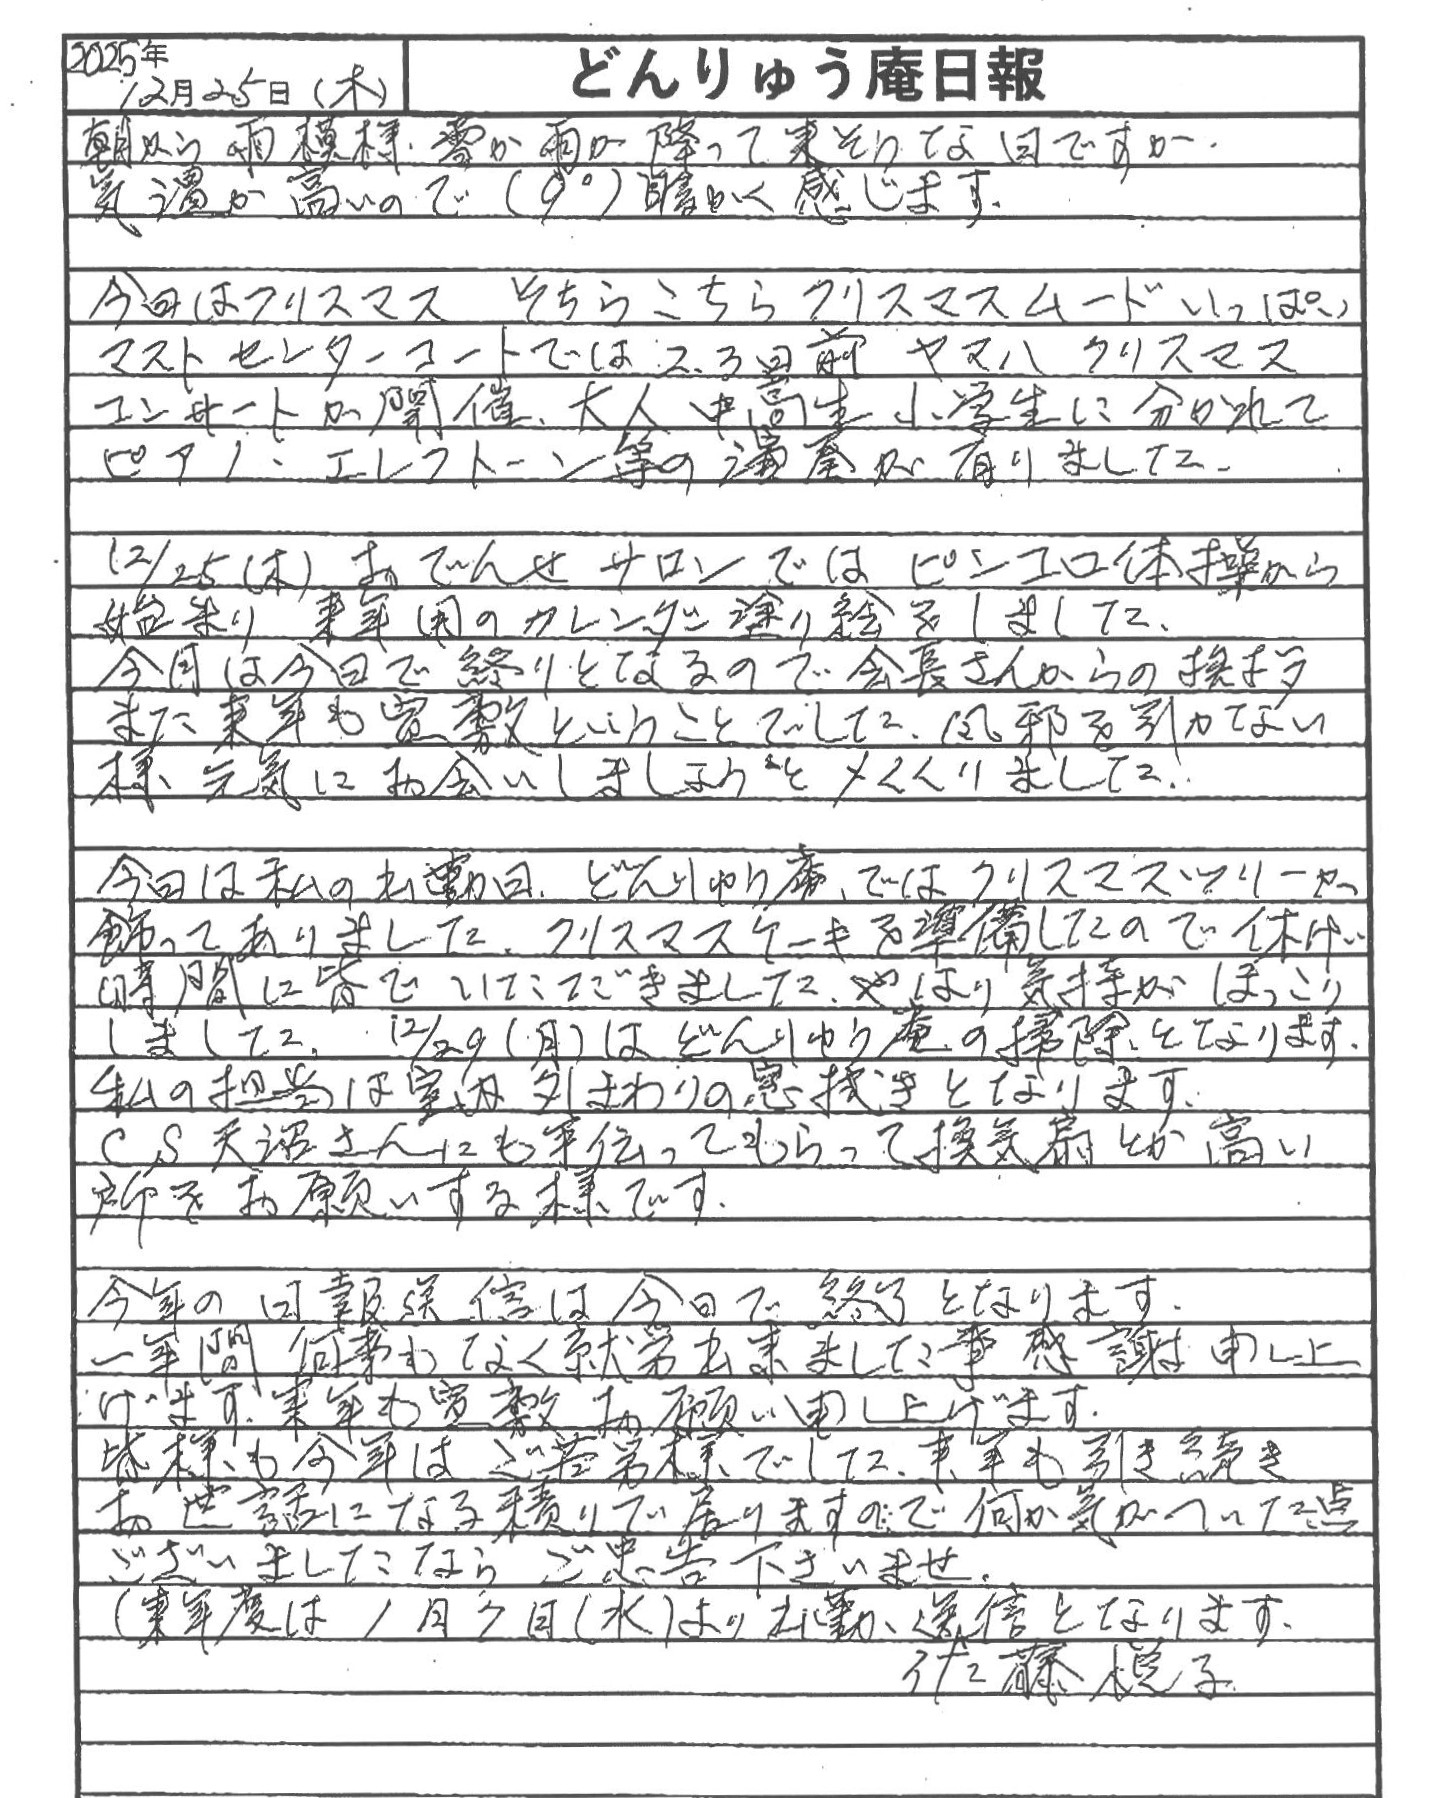 2025年
12月25日(木)
どんりゅう庵日報
朝から雨模様、雪か雨が降って来そうな日ですが、
気温が高いので(9°)暖かく感じます。
今日はクリスマス そちらこちらクリスマスムードいっぱい
マストセンターコートでは2.3日前 ヤマハクリスマス
コンサートが開催、大人 中高生 小学生に分かれて
ピアノ、エレクトーン等の演奏が有りました。
12/25(木) おでんせサロンではピンコロ体操から
始まり 来年用のカレンダー塗り絵をしました。
今月は今日で終りとなるので会長さんからの挨拶
また来年も宜敷ということでした。風邪を引かない
様、元気にお会いしましょうと〆くくりました。
今日は私の出勤日、どんりゅう庵ではクリスマスツリーが
飾ってありました。クリスマスケーキを準備したので休けい
時間に皆でいただきました。やはり気持がほっこり
しました。 12/29(月)はどんりゅう庵の掃除となります。
私の担当は室内外まわりの窓拭きとなります。
CS天沼さんにも手伝ってもらって換気扇とか高い
所をお願いする様です。
今年の日報送信は今日で終了となります。
一年間何事もなく就労出来ました事感謝申し上
げます。来年も宜敷お願い申し上げます。
皆様も今年はご苦労様でした。来年も引き続き
お世話になる積りで居りますので何か気がついた点
ございましたなら ご忠告下さいませ。
(来年度は1月7日(水)より出勤、送信となります。
佐藤悦子